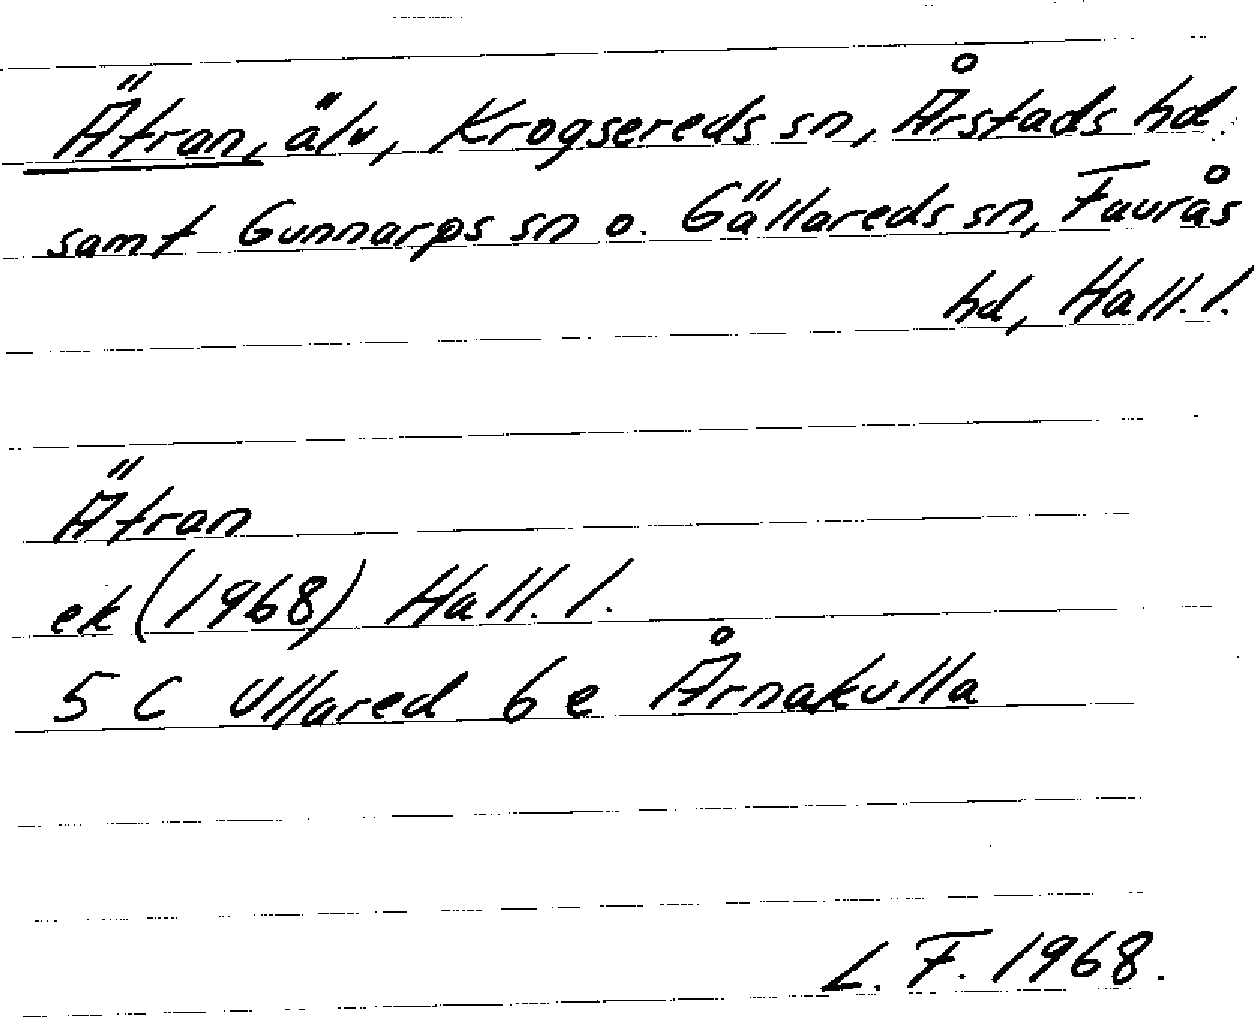 Ätran, älv, Krogsereds sn, Årstads hd
samt Gunnarps sn o. Gällareds sn, Faurås
hd, Hall. l.
Ätran
ek (1968) Hall. l.
5 C Ullared 6 e Årnakulla
L. F. 1968.